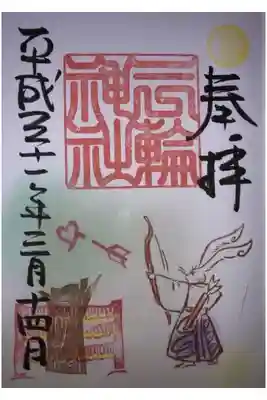 奉拝
三輪
神社
平成三十一年二月十四日